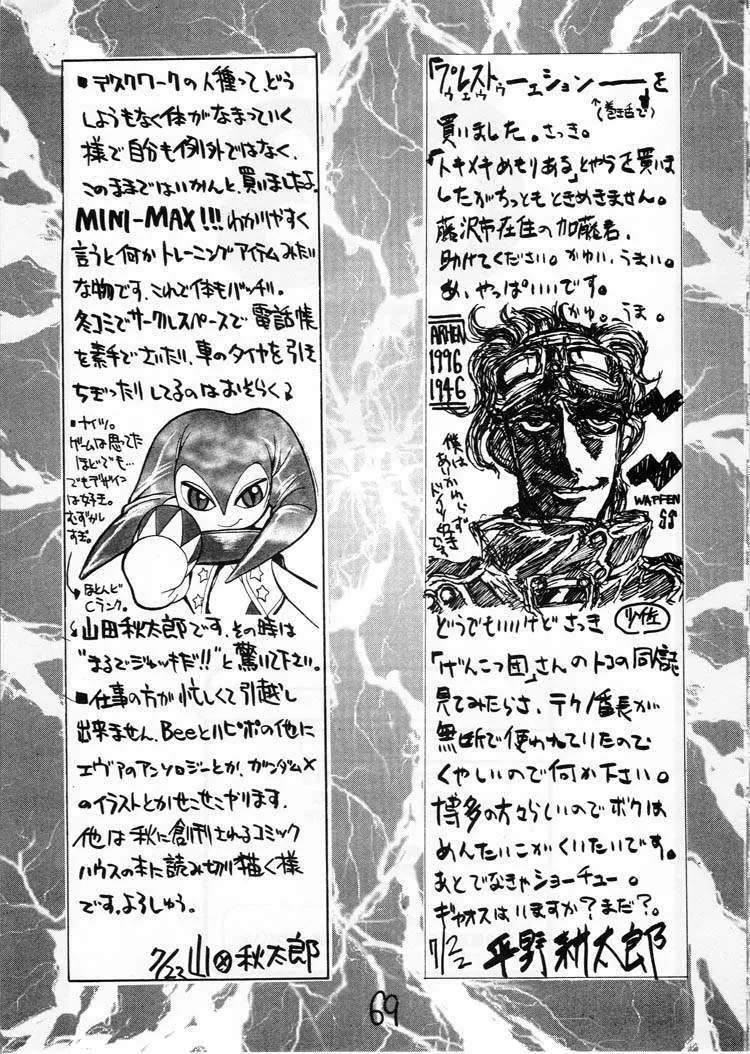 ■デスクワークの人種って、どう
しようもなく体がなまっていく
様で自分も例外ではなく、
このままではいかんと、買いましたよ。
MINI-MAX!!! わかりやすく
言うと何かトレーニングアイテムみたい
な物です、これで体もバッチリ。
冬コミでサークルスペースで電話帳
を素手でさいたり、車のタイヤを引き
ちぎったりしてるのはおそらく
■ナイツ。
ゲームは思ってた
ほどでも…
でもデザイン
は好き。
むずかし
すぎ。
ほとんど
Cランク。
山田秋太郎です、その時は
“まるでジャッキだ!!”と驚いて下さい。
■仕事の方が忙しくて引越し
出来ません、Beeとハピポの他に
エヴァのアンソロジーとか、ガンダムX
のイラストとかせこせこやります、
他は秋に創刊されるコミック
ハウスの本に読み切り描く様
です、よろしゅう。
7/22 山田秋太郎
「プレストゥーエション──を
(巻き舌で)
買いました。さっき。
「トキメキめもりある」とやらを買いま
したがちっともときめきません。
藤沢市在住の加藤君、
助けてください。かゆい、うまい。
あ、やっぱいいです。
かゆ。うま。
ARMEN
1996
1946
僕は
あいかわらず
ドイツ好き
です。
WAFFEN
SS
どうでもいいけどさっき
少佐
「げんこつ団」さんのトコの同人誌
見てみたらさ、テクノ番長が
無断で使われていたので
くやしいので何か下さい。
博多の方々らしいのでボクは
めんたいこがくいたいです。
あとでなきゃショーチュー。
ギャオスはいますか?まだ?。
7/22 平野耕太郎
69